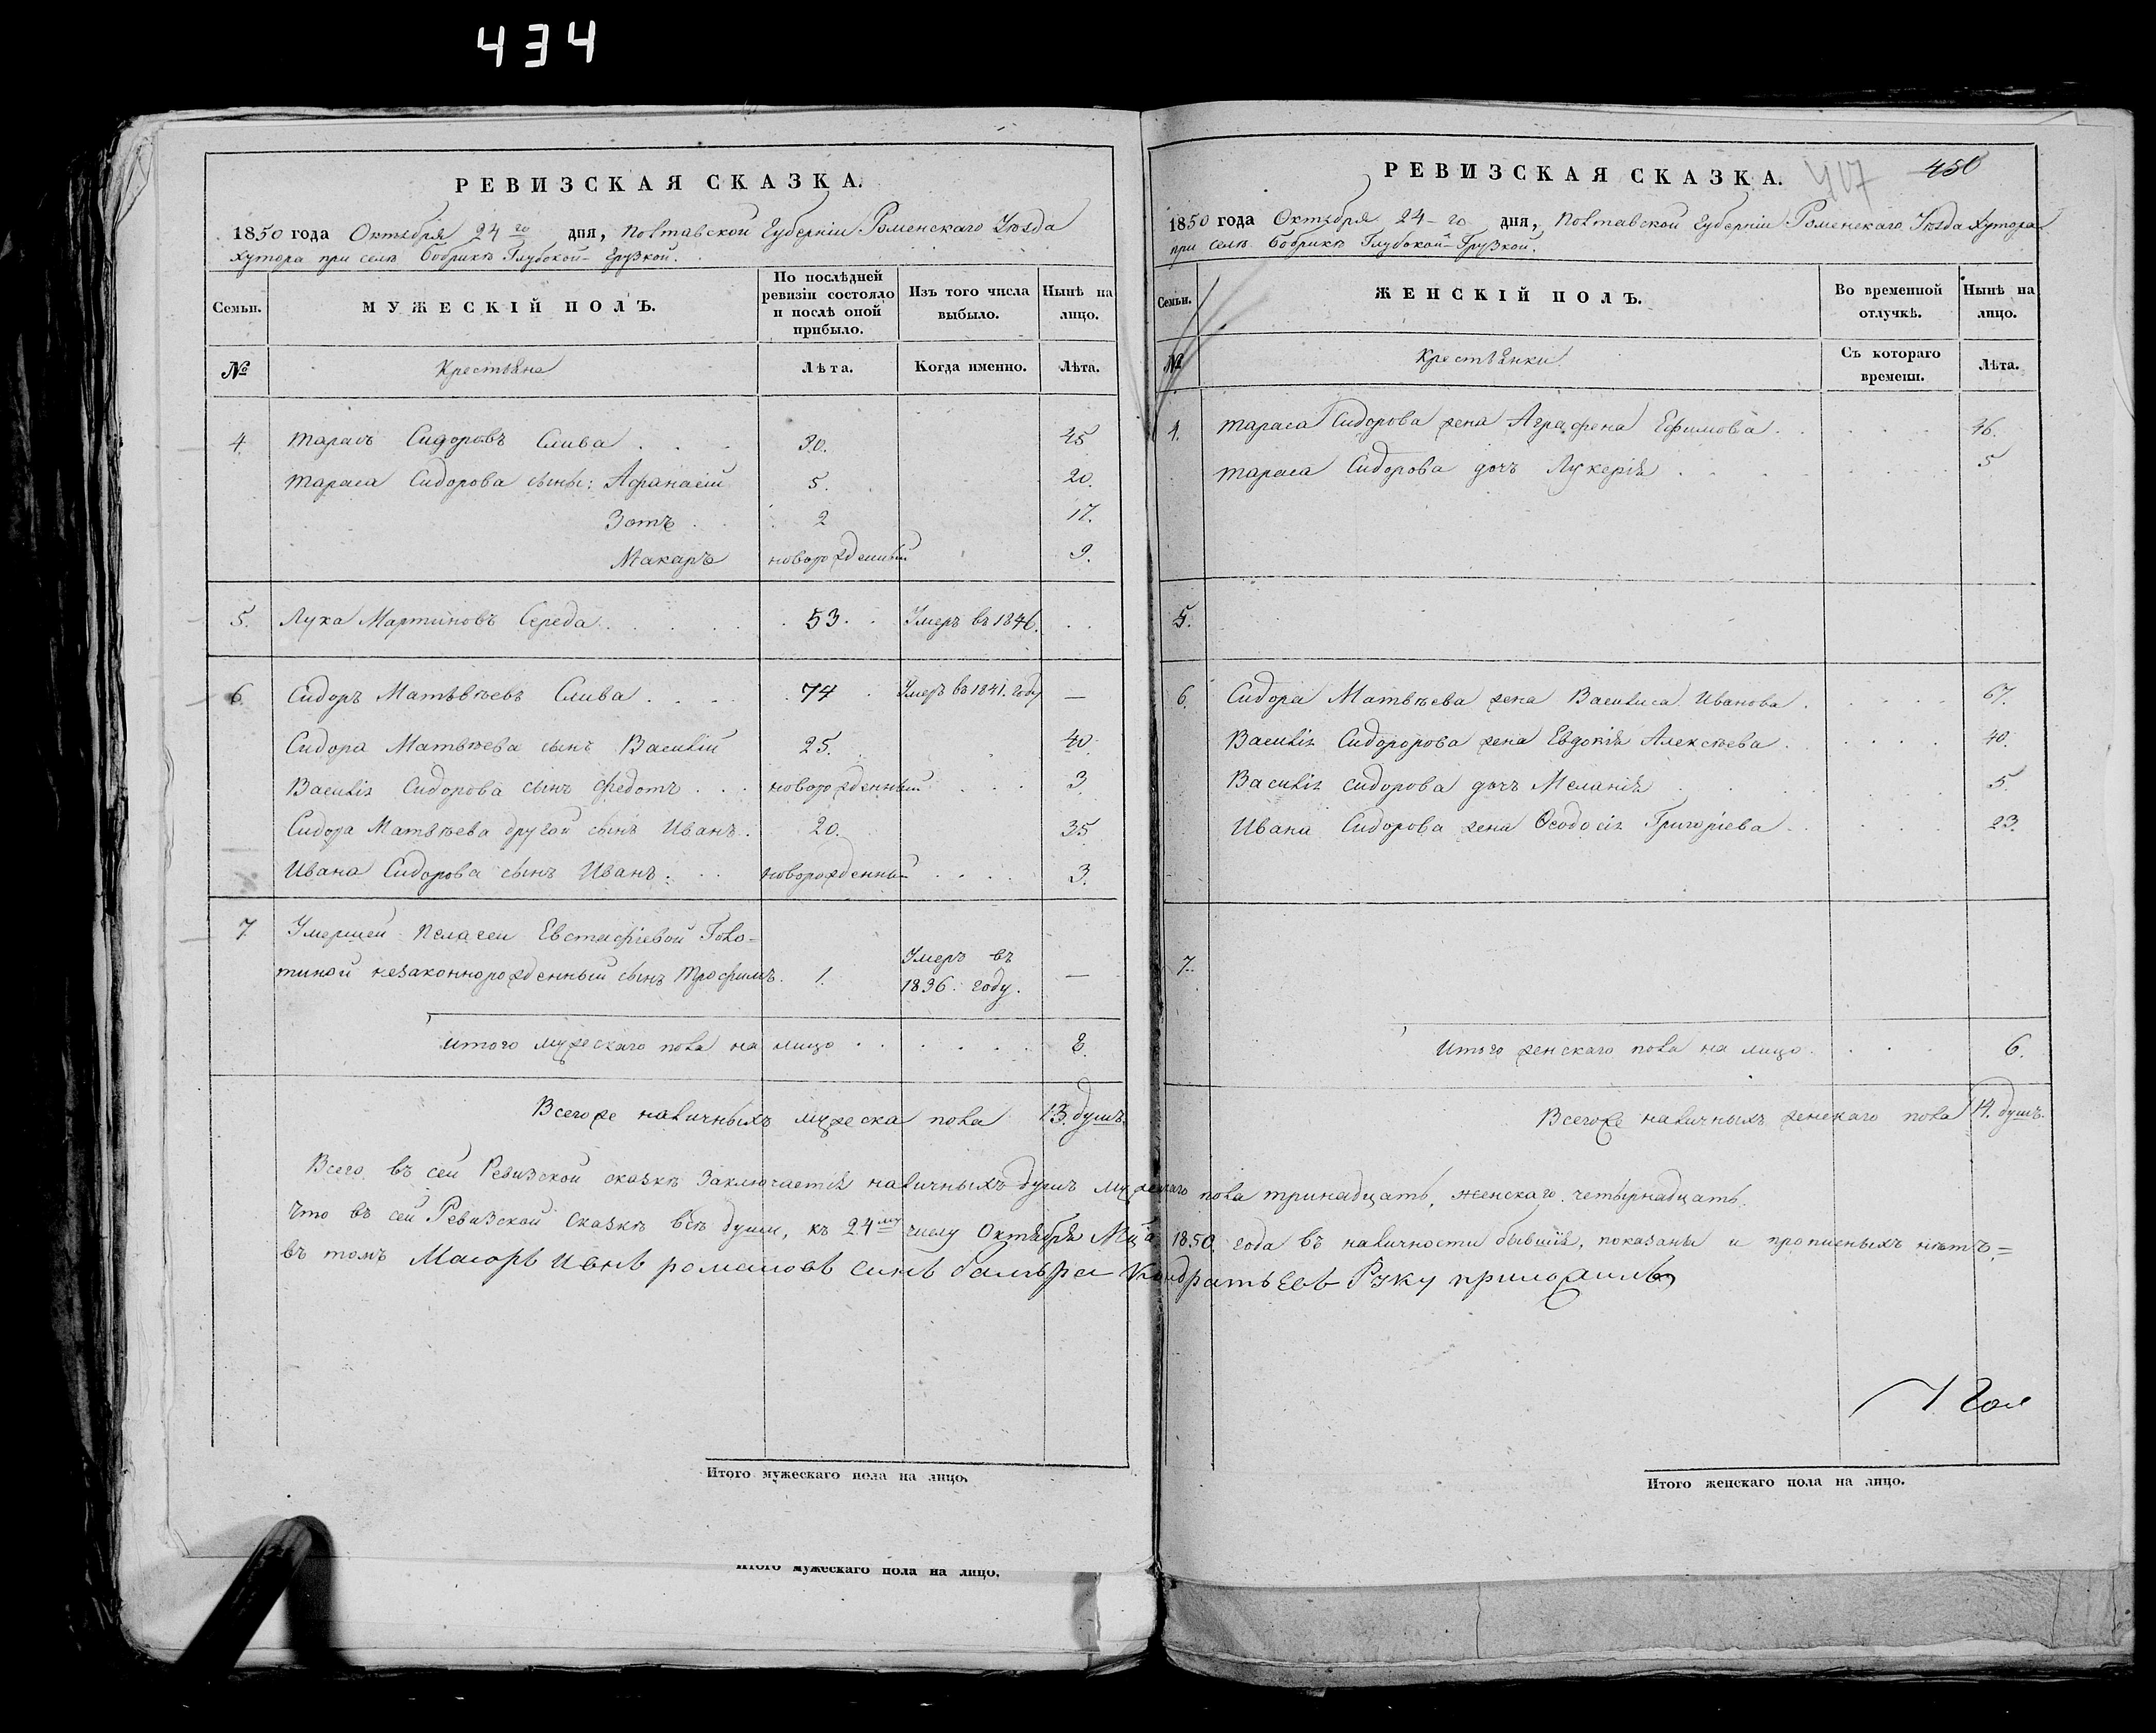 434
РЕВИЗСКАЯ СКАЗКА.
1850 года Октября 24 го дня, Полтавской Губерніи Роменскаго Уѣзда
хутора при селѣ Бобрикѣ Глубокой-Грузкой.
Семьи.
МУЖЕСКІЙ ПОЛЪ.
По послѣдней ревизіи состояло и послѣ оной прибыло.
Изъ того числа выбыло.
Нынѣ на лицо.
№
Крестьяне
Лѣта.
Когда именно.
Лѣта.
4. Тарасъ Сидоровъ Слива . . . 30. 45
Тараса Сидорова сыны: Афанасій 5. 20.
Зотъ . . 2 17.
Макаръ новорожденный 9.
5. Лука Мартиновъ Середа . . . . . 53. . Умеръ въ 1846. . .
6. Сидоръ Матвѣевъ Слива . . . . 74 . Умеръ въ 1841. году —
Сидора Матвѣева сынъ Василій 25. 40.
Василія Сидорова сынъ Федотъ . . . новорожденный . . . 3.
Сидора Матвѣева другой сынъ Иванъ . 20. 35.
Ивана Сидорова сынъ Иванъ . . . новорожденный . . . . 3.
7. Умершей Пелагеи Евстафіевой Голо=
тиной незаконнорожденный сынъ Трофимъ. 1. Умеръ въ 1836. году. —
Итого мужескаго пола на лицо . . . . . . 8.
Всегоже наличныхъ мужеска пола 13. душъ.
РЕВИЗСКАЯ СКАЗКА.
417
450
1850 года Октября 24-го дня, Полтавской Губерніи Роменскаго Уѣзда Хутора
при селѣ Бобрикѣ Глубокой-Грузкой.
Семьи.
ЖЕНСКІЙ ПОЛЪ.
Во временной отлучкѣ.
Нынѣ на лицо.
№
Крестьянки
Съ котораго времени.
Лѣта.
4. Тараса Сидорова жена Аграфена Ефимова . . . . . . 46.
Тараса Сидорова дочь Лукерія . . . . . . 5
5.
6. Сидора Матвѣева жена Василиса Иванова . . . . . 67.
Василія Сидоророва жена Евдокія Алексѣева . . . . . 40.
Василія Сидорова дочь Меланія . . . . . 5.
Ивана Сидорова жена Ѳеодосія Григоріева . . . . . 23.
7.
Итого женскаго пола на лицо . . . . 6.
Всегоже наличныхъ женскаго пола 14. душъ.
Всего въ сей Ревизской сказкѣ заключается наличныхъ душъ мужескаго пола тринадцать, женскаго четырнадцать.
Что въ сей Ревизской Сказкѣ всѣ души, къ 24му числу Октября Мца 1850 года въ наличности бывшія, показаны и прописныхъ нѣтъ,=
въ томъ Маіоръ романовъ синъ Кондратьевъ Руку приложилъ
Итого мужескаго пола на лицо.
Итого женскаго пола на лицо.
Итого мужескаго пола на лицо.